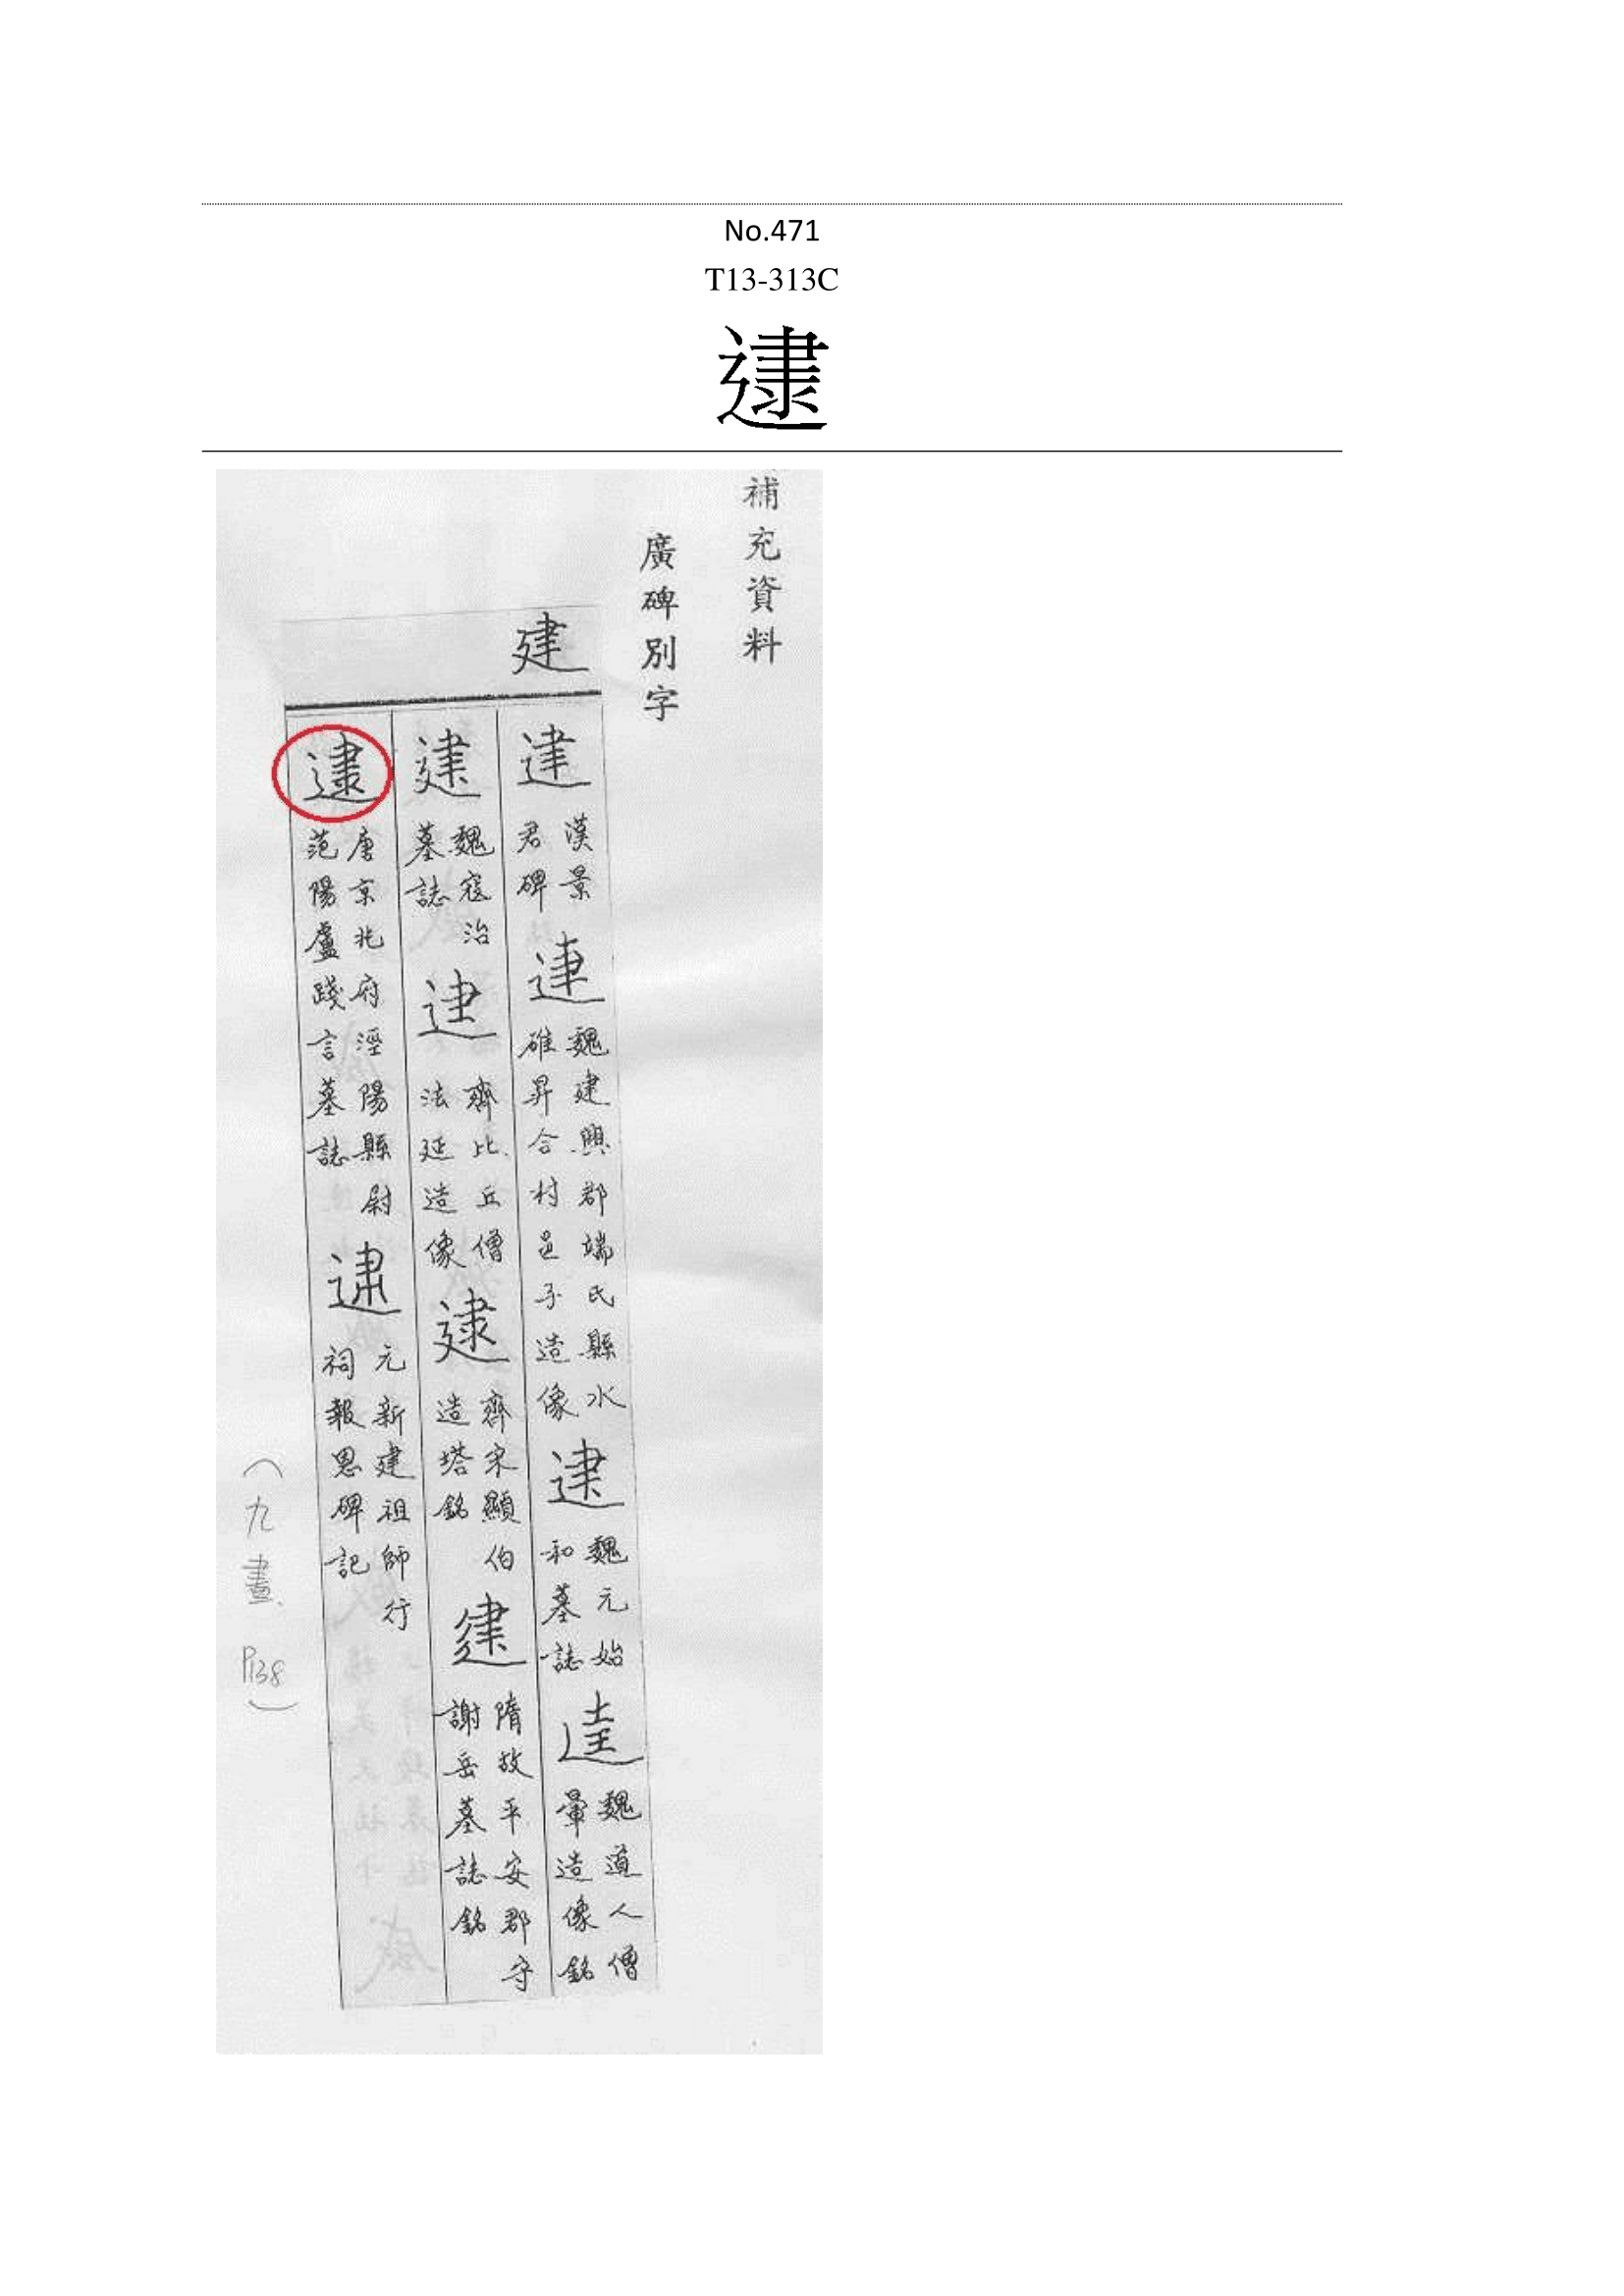 No.471
T13-313C
補充資料
廣碑別字
建
漢景君碑
魏建興郡端氏縣水碓昇合村邑子造像
魏元始和墓誌
魏道人僧暈造像銘
魏寇治墓誌
齊比丘僧法延造像
齊宋顯伯造塔銘
隋故平安郡守謝岳墓誌銘
唐京兆府涇陽縣尉范陽盧踐言墓誌
元新建祖師行祠報恩碑記
(九畫、P138)